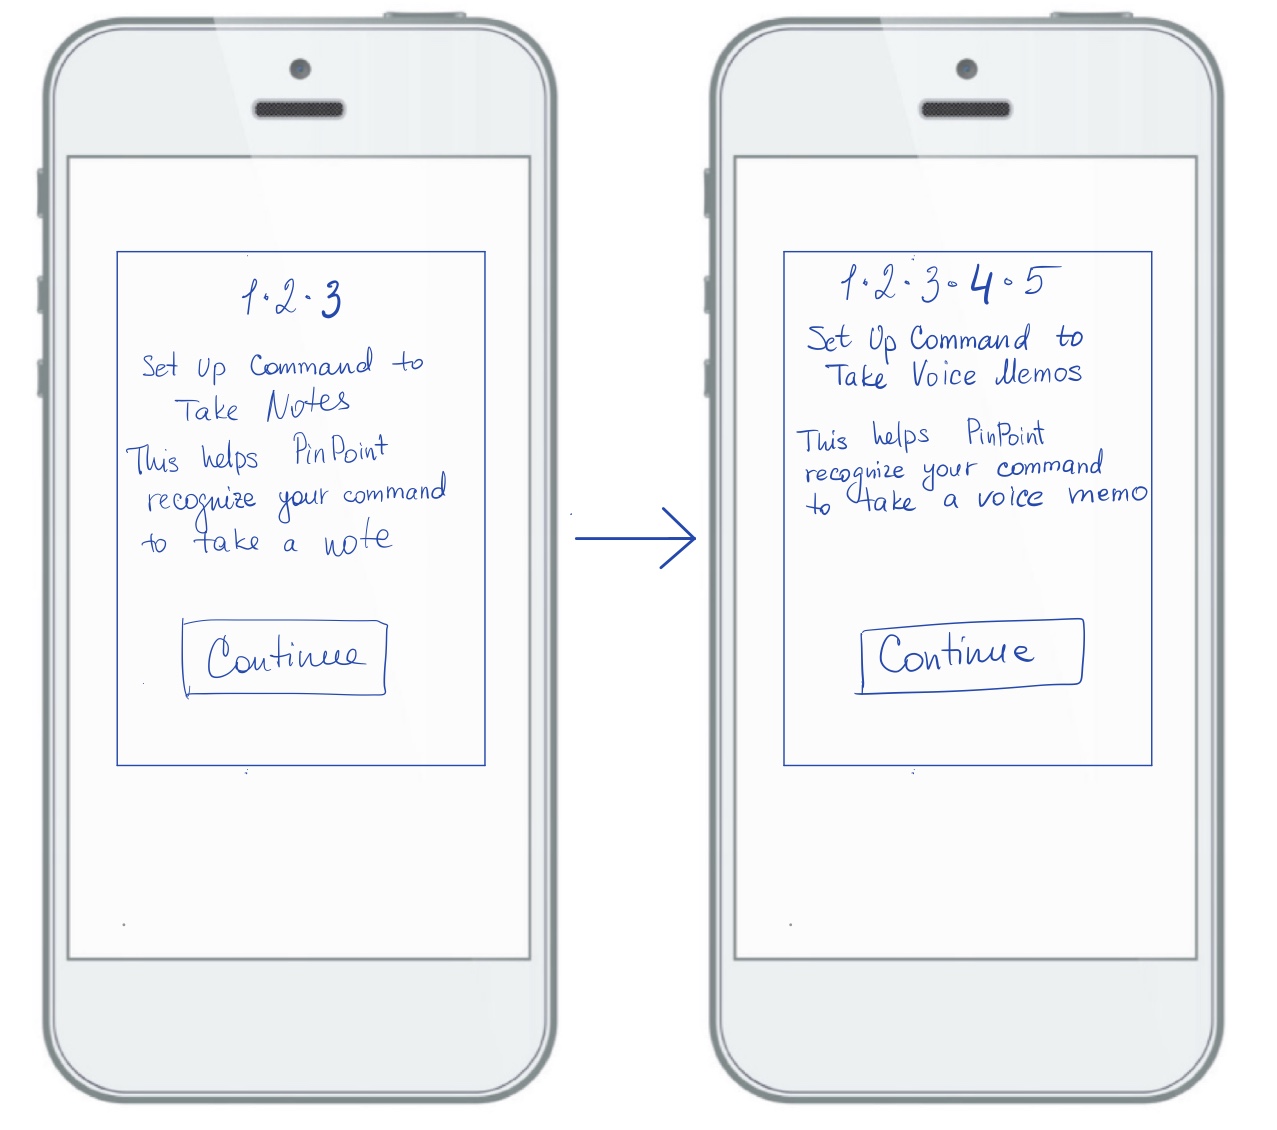 1 · 2 · 3
Set Up Command to
Take Notes
This helps PinPoint
recognize your command
to take a note
Continue
1 · 2 · 3 · 4 · 5
Set Up Command to
Take Voice Memos
This helps PinPoint
recognize your command
to take a voice memo
Continue